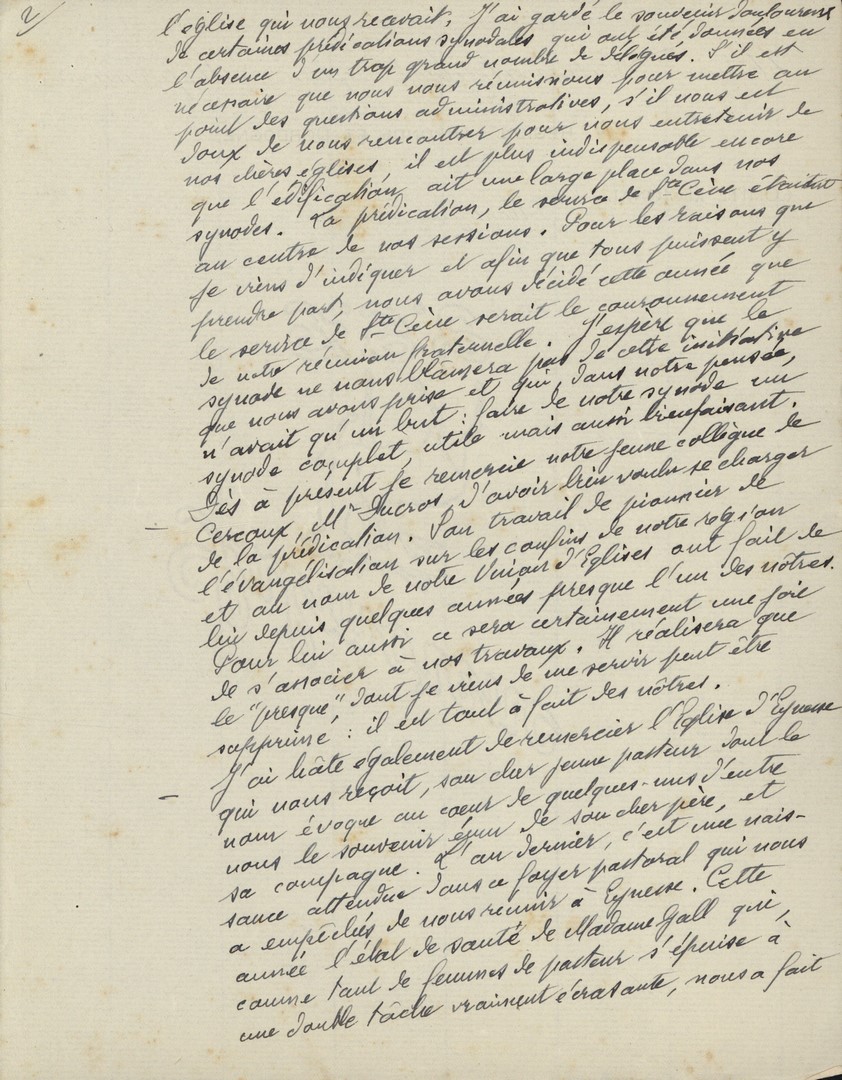 2/
l'église qui nous recevait. J'ai gardé le souvenir douloureux
de certaines prédications synodales qui ont été données en
l'absence d'un trop grand nombre de délégués. S'il est
nécessaire que nous nous réunissions pour mettre au
point des questions administratives, s'il nous est
doux de nous rencontrer pour nous entretenir de
nos chères églises, il est plus indispensable encore
que l'édification ait une large place dans nos
synodes. La prédication, le service de Ste Cène étaient
au centre de nos sessions. Pour les raisons que
je viens d'indiquer et afin que tous puissent y
prendre part, nous avons décidé cette année que
le service de Ste Cène serait le couronnement
de notre réunion fraternelle. J'espère que le
synode ne nous blâmera pas de cette initiative
que nous avons prise et qui, dans notre pensée,
n'avait qu'un but : faire de notre synode un
synode complet, utile mais aussi bienfaisant.
Dès à présent je remercie notre jeune collègue de
Cercoux, Mr Ducros, d'avoir bien voulu se charger
de la prédication. Son travail de pionnier de
l'évangélisation sur les confins de notre région
et au nom de notre Union d'Eglises ont fait de
lui depuis quelques années presque l'un des nôtres.
Pour lui aussi ce sera certainement une joie
de s'associer à nos travaux. Il réalisera que
le "presque", dont je viens de me servir peut être
supprimé : il est tout à fait des nôtres.
J'ai hâte également de remercier l'Eglise d'Eynesse
qui nous reçoit, son cher jeune pasteur dont le
nom évoque au coeur de quelques-uns d'entre
nous le souvenir ému de son cher père, et
sa compagne. L'an dernier, c'est une nais-
sance attendue dans ce foyer pastoral qui nous
a empêchés de nous réunir à Eynesse. Cette
année l'état de santé de Madame Gall qui,
comme tant de femmes de pasteur s'épuise à
une double tâche vraiment écrasante, nous a fait